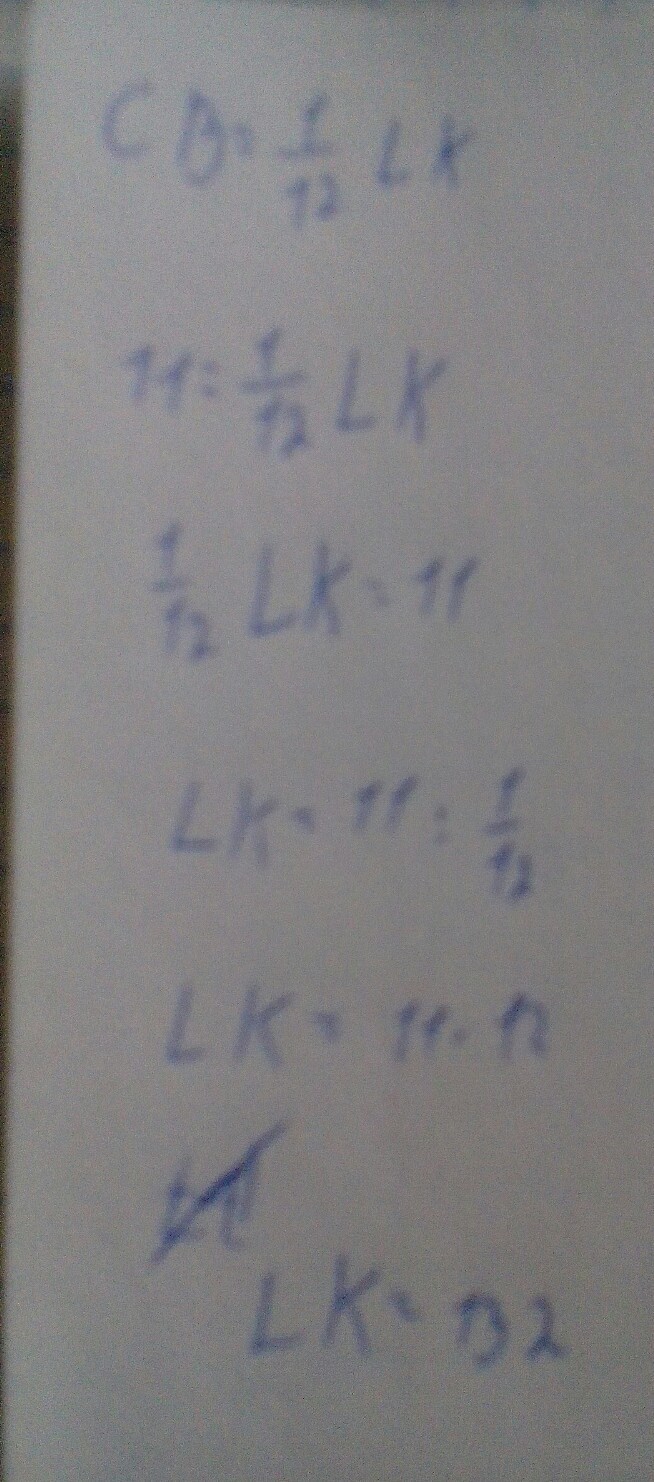 CB = 1/12 LK
11 = 1/12 LK
1/12 LK = 11
LK = 11 : 1/12
LK = 11 · 12
LK = 132